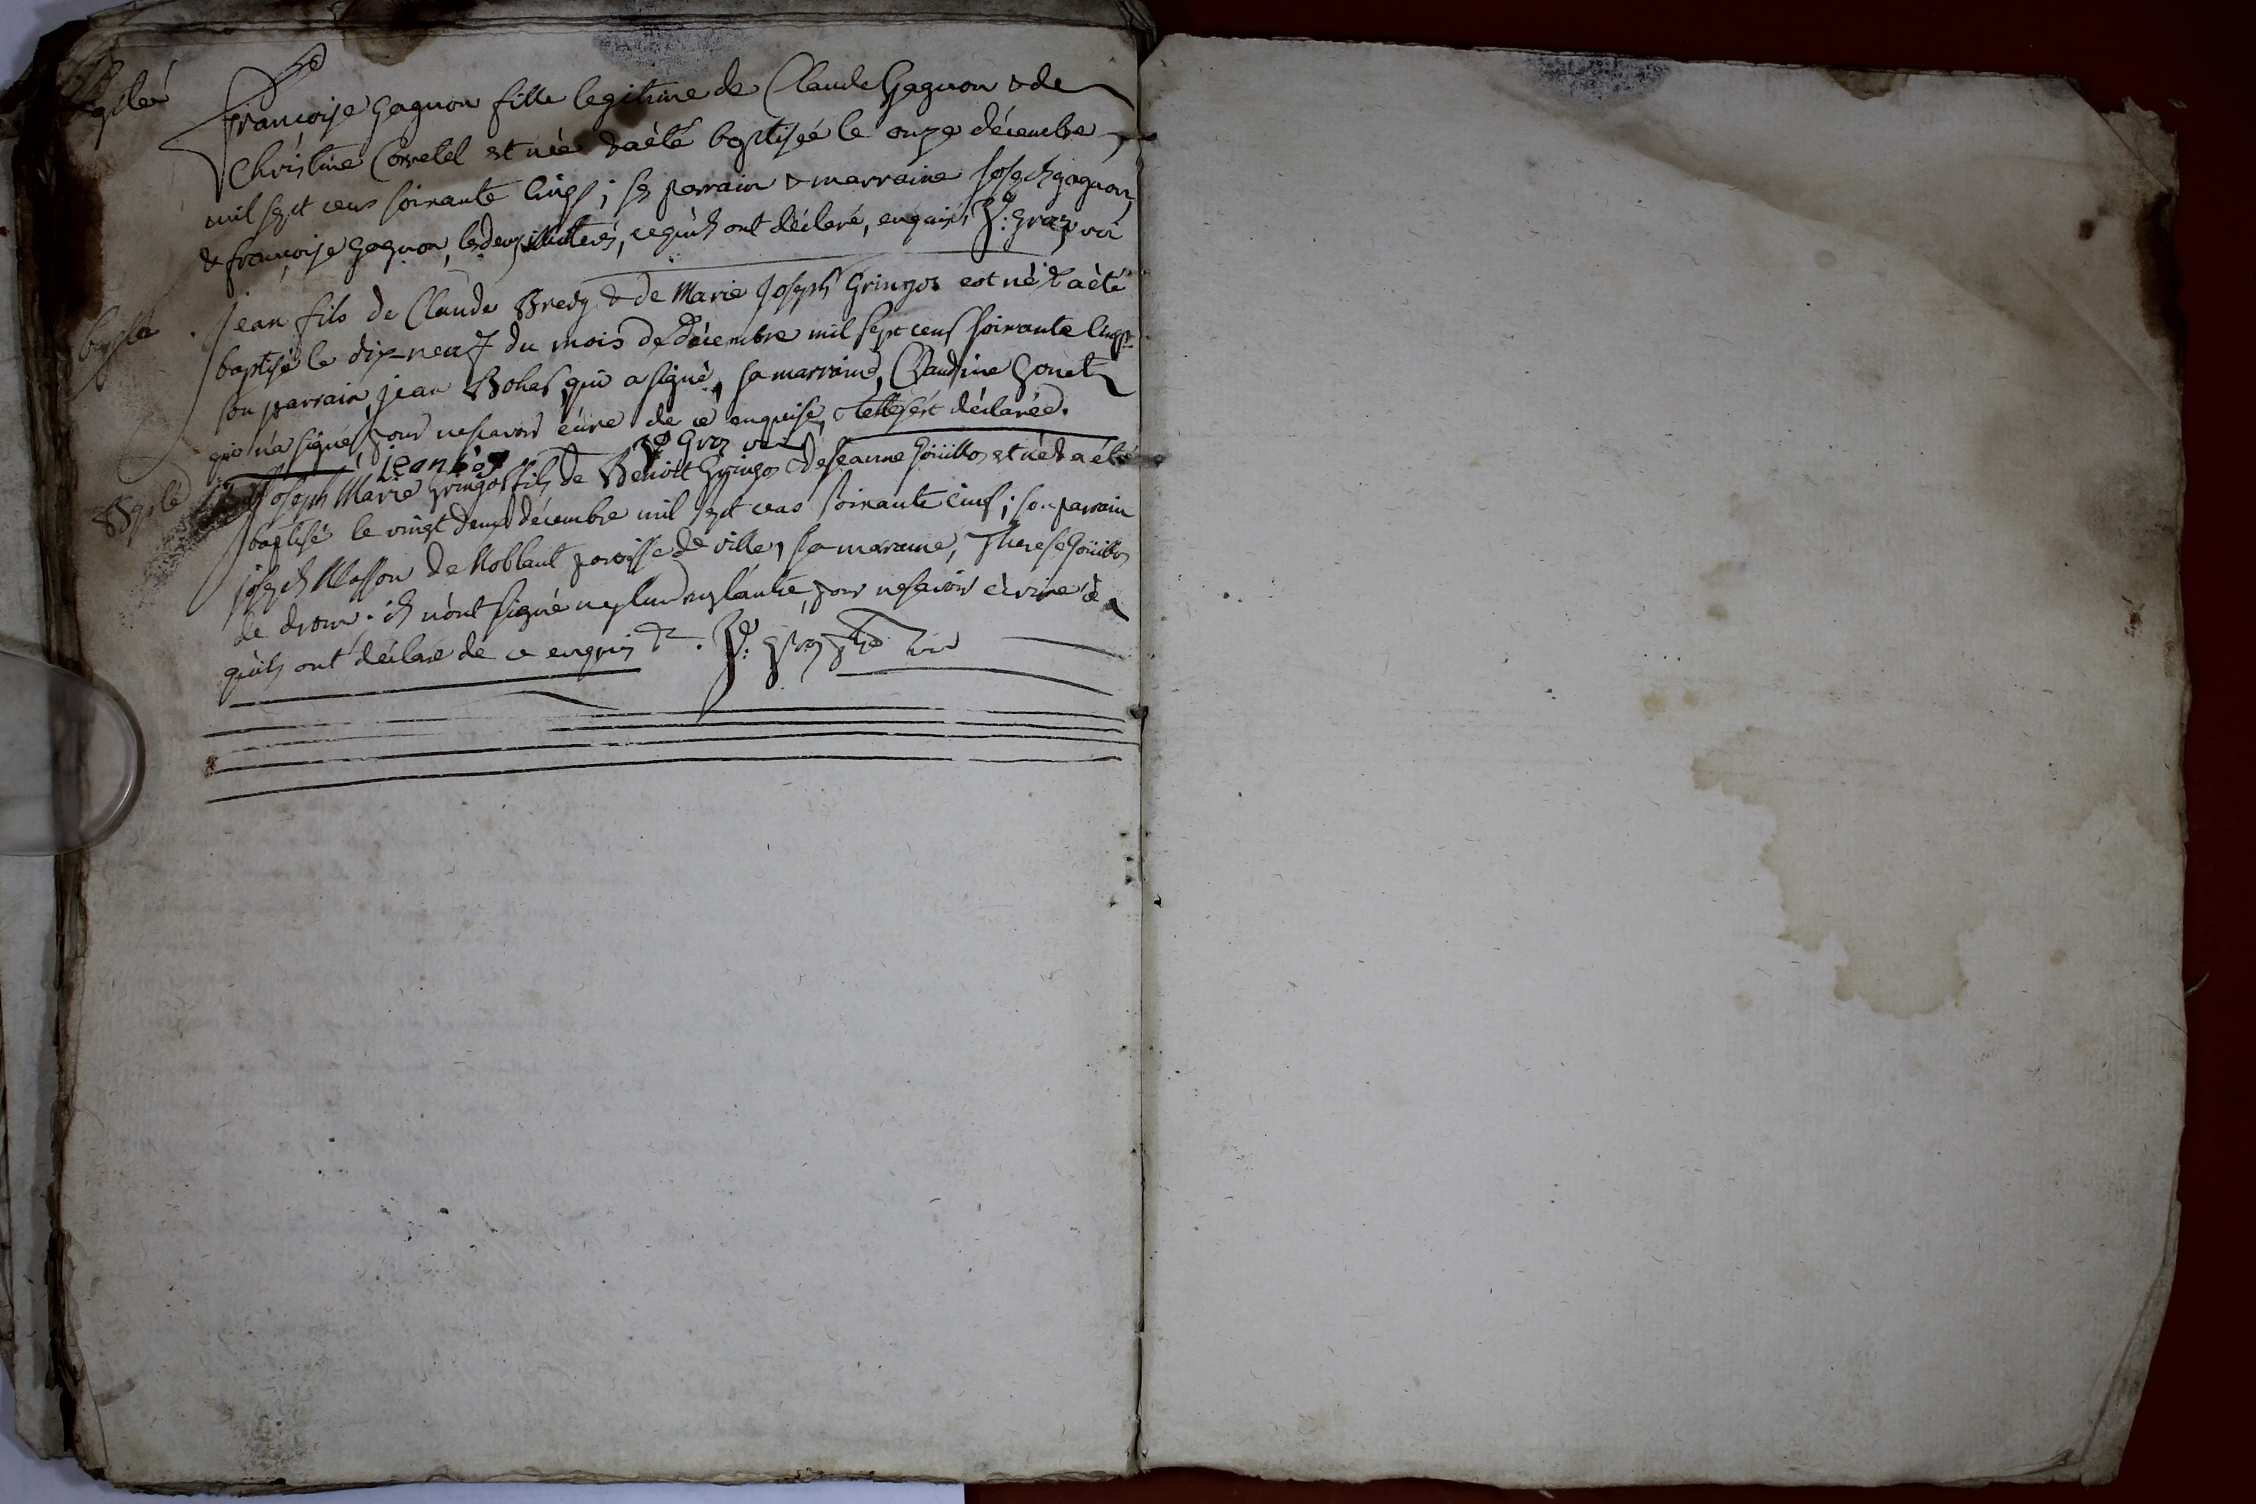 Françoise Gagnon fille legitime de Claude Gagnon & de
Christine Corretel est née & a été baptiséé le onze décembre
mil sept cens soixante cinq ; ses parrain & marraine Joseph gagnon,
& françoise gagnon, les deux illiterés, ce qu'ils ont déclaré, enquis, Graz
bapte
Jean fils de Claude Bredy & de Marie Joseph Gringoz est né & a été
baptisé le dix-neuf du mois de décembre mil sept cens soixante cinq
son parrain, jean Bohas, qui a signé, sa marraine, Claudine Gonet
qui n'a signé, pour ne scavoir écrire de ce enquise, & telle s'est déclaréé.
Graz
Joseph Marie Gringoz fils de Benoit Gringoz & de Jeanne Goüilloz est né & a été
baptisé le vingt deux décembre mil sept cens soixante cinq ; son parrain
joseph Masson de Noblant paroisse de ville, sa maraine, Therese Goüilloz
de drom . ils n'ont signé ny l'un ny l'autre, pour ne savoir écrire à
qu'ils ont déclaré de ce enquis